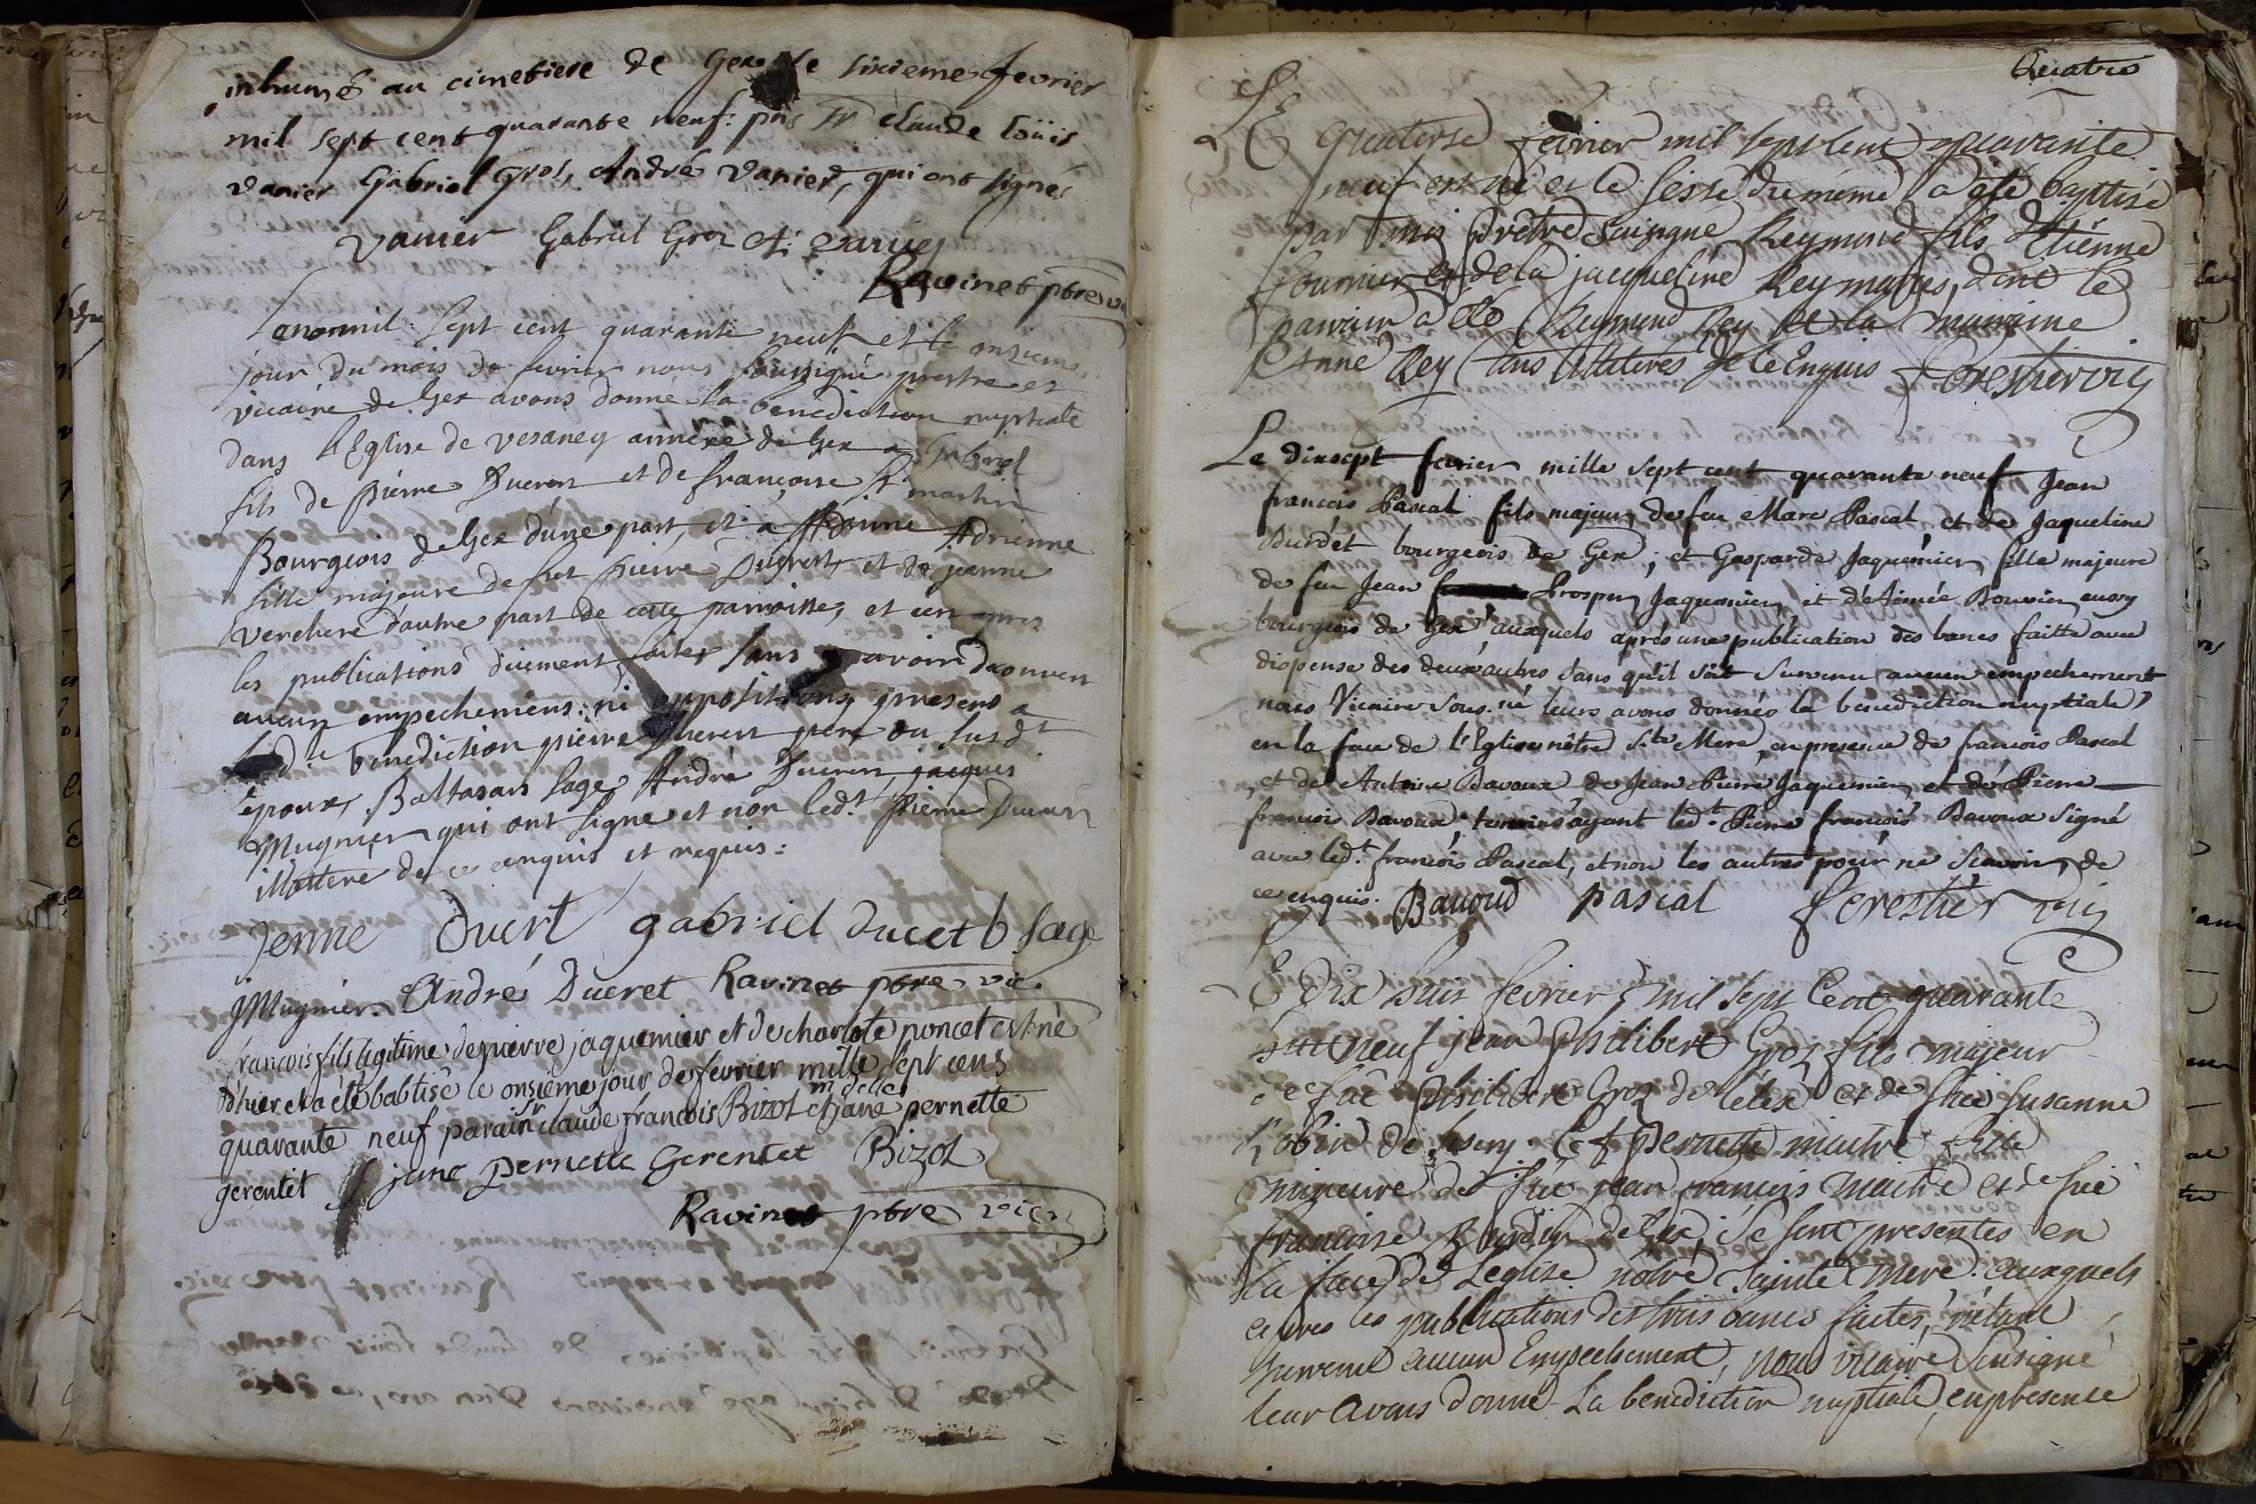 inhumé au cimetiere de Gex le sixieme fevrier
mil sept cent quarante neuf: pns Sr claude loüis
vanier Gabriel Gros, André vanier, qui ont signés
vanier Gabriel Groz A: vanier
Ravinet ptre vic
Lan mil sept cent quarante neuf et le onzieme
jour du mois de fevrier nous soussigné prestre et
vicaire de Gex avons donné la benediction nuptiale
dans l'Eglise de vesancy annexe de Gex a Gabriel
fils de Pierre Ducret et de francoise St martin
Bourgeois de Gex d'une part, et a Adrienne
fille majeure de fut pierre Ducret et de jeanne
verchere d'autre part de cette parroisse, et ce apres
les publications düement faites sans avoir decouvert
aucun empechemens ni oppositions, presens a
lad.te benediction pierre Ducret pere du susd.t
epoux, Baltasard Sage André Ducret, jacques
Mugnier qui ont signé et non led.t Pierre Ducret
illitteré de ce enquis et requis:
Jenne Ducrt gabriel ducet b sage
J Mugnier André Ducret Ravinet ptre vic
francois fils legitime de pierre jaquemier et de charlote poncet est né
d'hier et a été babtisé le onsieme jour de fevrier mille sept cens
quarante neuf parain sr claude francois Bizot et m.delle jane pernette
gerentet jane pernette Gerentet Bizot
Ravinet ptre vic
Quatre
Le quatorse fevrier mil sept cent quarante
neuf est né et le sesse du meme a été baptisé
par moi prêtre soisigné Reymond fils d'Etiénne
fournier et de la jacqueline Rey mariés, dont le
parrain a été Reymond Rey et la marraine
Anne Rey tous illiteres de ce Enquis Forestier vic
Le dixsept fevrier mille sept cent quarante neuf Jean
francois Pascal fils majeur de feu Marc Pascal et de Jaqueline
Burdet bourgeois de Gex; et Gasparde Jaquemier fille majeure
de feu Jean Prosper Jaquemier et d'Aimée Bouvier aussy
bourgeois de Gex auxquels aprés une publication des bancs faitte avec
dispense des deux autres sans qu'il soit survenu aucun empechement
nous Vicaire sous.né leurs avons donnés la benediction nuptiale
en la face de l'Eglise nôtre S.te Mere, en presence de francois Pascal
et de Antoine Bavoux de Jean Pierre Jaquemier et de Pierre
francois Bavoux, temoins ayant led.t Pierre francois Bavoux signé
avec led.t francois Pascal, et non les autres pour ne scavoir, de
ce enquis. Bavoud pascal forestier vic
Le dix huit fevrier, mil sept cent quarante
neuf jean philibert Groz fils majeur
de füe philibert Groz de lélex et de füe susanne
Robin de Et pernette maitre fille
mineure de füe jean francois maitre et de füe
francoise de Gex, se sont presentés en
la face de Leglise notre sainte mere auxquels
apres les publications des trois bancs faites, n'étant
survenu aucun Empechement, nous vicaire sousigné
leur avons donné La benediction nuptiale, en presence